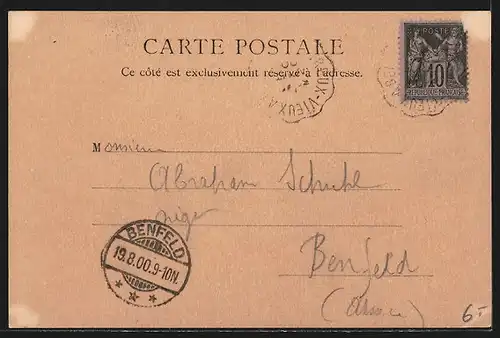 CARTE POSTALE
Ce côté est exclusivement réservé à l'adresse.
10
REPUBLIQUE FRANÇAISE
UX-VIEUX
Monsieur
Abraham
Benfeld
(Alsace)
BENFELD
19.8.00.9-10N.
6-